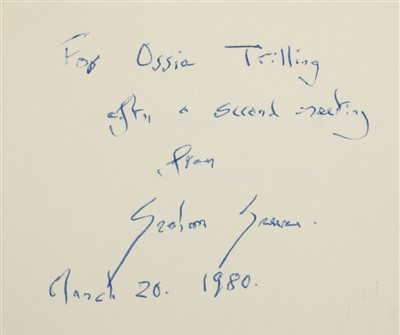 For Ossia Trilling
after a second meeting
from
Graham Greene.
March 20. 1980.